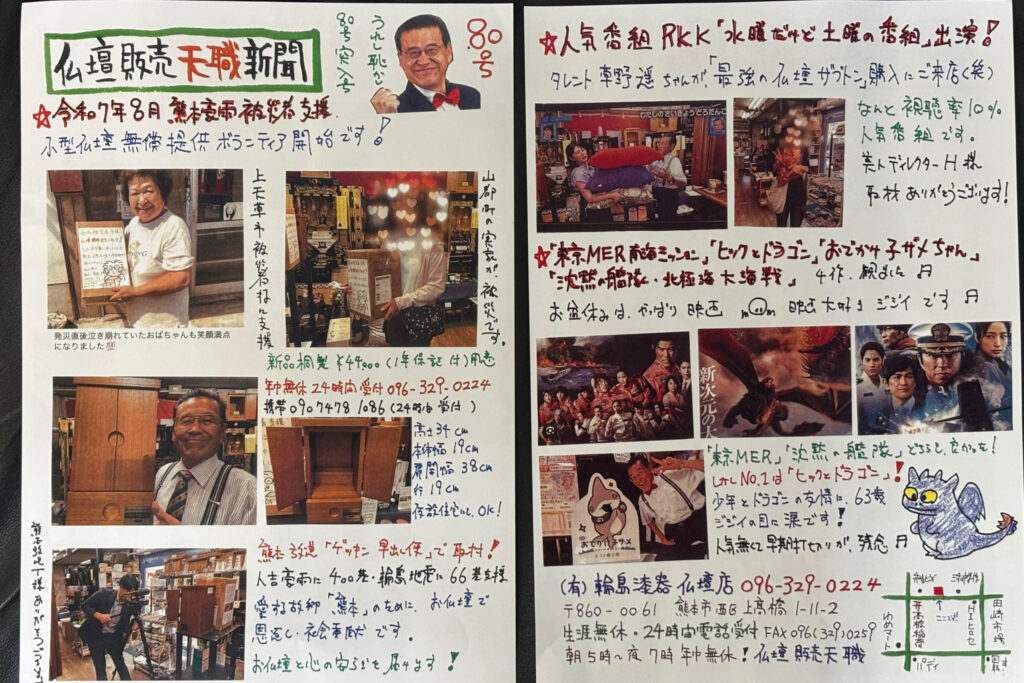 仏壇販売天職新聞
80号突入号
うれし恥かし
80号
☆令和7年8月 熊本豪雨被災者支援
小型仏壇無償提供ボランティア開始です!
上天草市被災者様に支援
山都町の実家が、被災です。
発災直後泣き崩れていたおばちゃんも笑顔満点
になりました
新品桐製 ¥44,000(1年保証付)用意
年中無休24時間受付 096-329-0224
携帯 090 7478 1086 (24時間受付)
高さ34cm
本体幅19cm
扉開幅38cm
行19cm
仮設住宅にも、OK!
熊本放送「ゲツキン早出し便」で取材!
人吉豪雨に400基・輪島地震に66基支援
愛する故郷「熊本」のために、お仏壇で
恩返し・社会貢献です。
お仏壇と心の安らぎを届けます!
☆人気番組 RKK「水曜だけど土曜の番組」出演!
タレント草野遥ちゃんが、「最強の仏壇ザブトン」購入にご来店(笑)
わたしのさいきょうどろだんご
なんと視聴率10%
人気番組です。
美人ディレクターH様
取材ありがとうございます!
☆「東京MER 南海ミッション」「ヒックとドラゴン」「おでかけ子ザメちゃん」
「沈黙の艦隊・北極海大海戦」 4作、観ました
お盆休みは、やっぱり映画 映画大好きジジイです
新次元の
おでかけ子ザメ
「東京MER」「沈黙の艦隊」どちらも、良かった!
しかしNo.1は「ヒックとドラゴン」!
少年とドラゴンの友情に、63歳
ジジイの目に涙です!
人気無くて早期打切りが、残念
(有)輪島漆器仏壇店 096-329-0224
〒860-0061 熊本市西区上高橋1-11-2
生涯無休・24時間電話受付 FAX 096(329)0259
朝5時~夜7時 年中無休! 仏壇販売天職
ここです!
田崎市場
ゆめマート